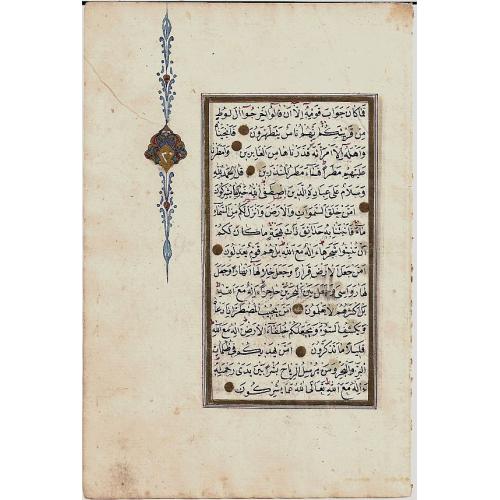 ٢٠
فَمَا كَانَ جَوَابَ قَوْمِهِ إِلَّا أَنْ قَالُوا أَخْرِجُوا آلَ لُوطٍ
مِنْ قَرْيَتِكُمْ إِنَّهُمْ أُنَاسٌ يَتَطَهَّرُونَ فَأَنْجَيْنَاهُ
وَأَهْلَهُ إِلَّا امْرَأَتَهُ قَدَّرْنَاهَا مِنَ الْغَابِرِينَ وَأَمْطَرْنَا
عَلَيْهِمْ مَطَرًا فَسَاءَ مَطَرُ الْمُنْذَرِينَ قُلِ الْحَمْدُ لِلَّهِ
وَسَلَامٌ عَلَى عِبَادِهِ الَّذِينَ اصْطَفَى آللَّهُ خَيْرٌ أَمَّا يُشْرِكُونَ
أَمَّنْ خَلَقَ السَّمٰوَاتِ وَالْأَرْضَ وَأَنْزَلَ لَكُمْ مِنَ السَّمَاءِ
مَاءً فَأَنْبَتْنَا بِهِ حَدَائِقَ ذَاتَ بَهْجَةٍ مَا كَانَ لَكُمْ
أَنْ تُنْبِتُوا شَجَرَهَا ءَإِلٰهٌ مَعَ اللَّهِ بَلْ هُمْ قَوْمٌ يَعْدِلُونَ
أَمَّنْ جَعَلَ الْأَرْضَ قَرَارًا وَجَعَلَ خِلَالَهَا أَنْهَارًا وَجَعَلَ
لَهَا رَوَاسِيَ وَجَعَلَ بَيْنَ الْبَحْرَيْنِ حَاجِزًا ءَإِلٰهٌ مَعَ اللَّهِ
بَلْ أَكْثَرُهُمْ لَا يَعْلَمُونَ أَمَّنْ يُجِيبُ الْمُضْطَرَّ إِذَا دَعَاهُ
وَيَكْشِفُ السُّوءَ وَيَجْعَلُكُمْ خُلَفَاءَ الْأَرْضِ ءَإِلٰهٌ مَعَ اللَّهِ
قَلِيلًا مَا تَذَكَّرُونَ أَمَّنْ يَهْدِيكُمْ فِي ظُلُمَاتِ
الْبَرِّ وَالْبَحْرِ وَمَنْ يُرْسِلُ الرِّيَاحَ بُشْرًا بَيْنَ يَدَيْ رَحْمَتِهِ
ءَإِلٰهٌ مَعَ اللَّهِ تَعَالَى اللَّهُ عَمَّا يُشْرِكُونَ